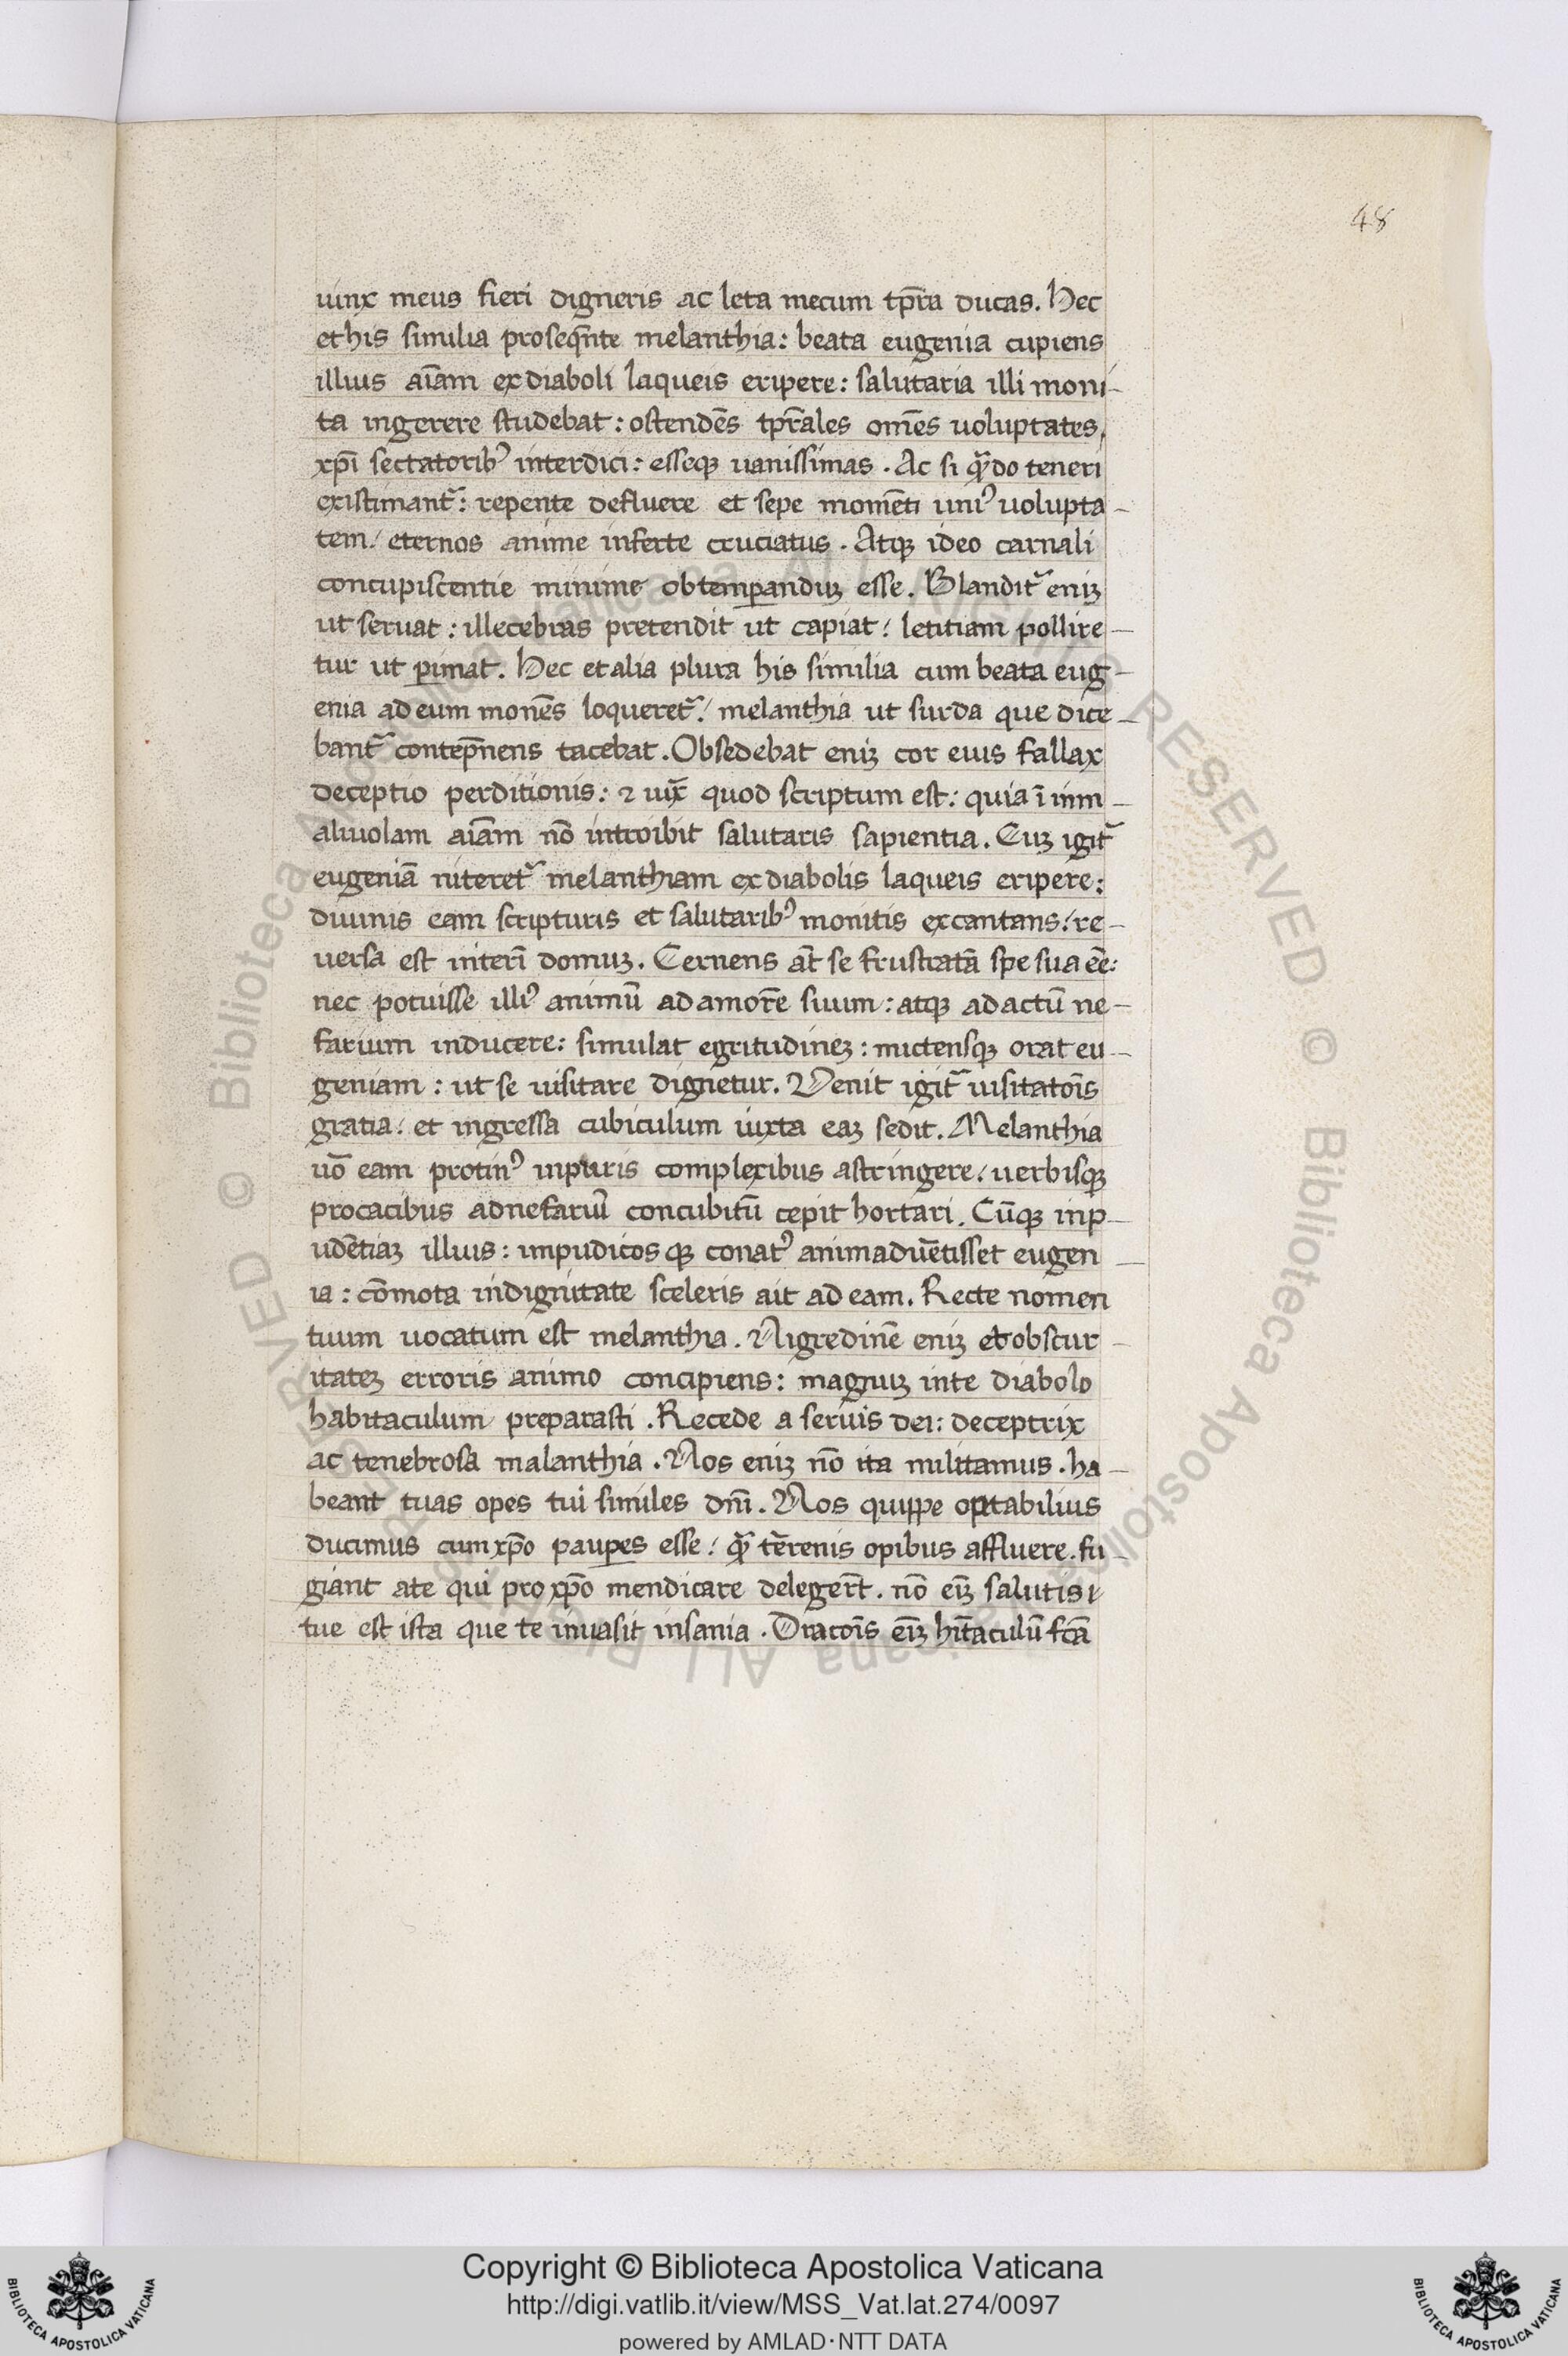 48
uinx meus fieri digneris ac leta mecum tp̄ra ducas. Hec
et his similia proseq̄nte melanthia: beata eugenia cupiens
illius aīam ex diaboli laqueis eripere: salutaria illi moni-
ta ingerere studebat: ostendēs tp̄rales om̄es uoluptates,
xp̄i sectatoribꝰ interdici: esseqꝫ uanissimas. Ac si qn̄do teneri
existimantᷣ: repente defluere et sepe momēti uniꝰ uolupta-
tem/ eternos anime inferte cruciatus. Atqꝫ ideo carnali
concupiscentie minime obtemꝑanduꝫ esse. Blanditᷣ eniꝫ
ut seruat: illecebras pretendit ut capiat/ letitiam pollire-
tur ut ꝑimat. Hec et alia plura his similia cum beata eug-
enia ad eum monēs loqueretᷣ/ melanthia ut surda que dice-
bantᷣ contep̄nens tacebat. Obsedebat eniꝫ cor eius fallax
deceptio perditionis: ⁊ uix̄ quod scriptum est: quia ī inm-
aliuolam aīam nō introibit salutaris sapientia. Cuꝫ igitᷣ
eugeniā niteretᷣ melanthiam ex diabolis laqueis eripere:
diuinis eam scripturis et salutaribꝰ monitis excantans/ re-
uersa est interī domuꝫ. Cernens āt se frustratā spe sua eē:
nec potuisse illiꝰ animū ad amorē suum: atqꝫ ad actū ne-
farium inducere: simulat egritudineꝫ: mictensqꝫ orat eu-
geniam: ut se uisitare dignetur. Venit igitᷣ uisitatōis
gratia/ et ingressa cubiculum iuxta eaꝫ sedit. Melanthia
uō eam protinꝰ inpuris complexibus astringere/ uerbisqꝫ
procacibus ad nefariuī concubitū cepit hortari. Cūqꝫ inp-
udētiaꝫ illius: impudicosqꝫ conatꝰ animaduētisset eugen-
ia: cōmota indignitate sceleris ait ad eam. Recte nomen
tuum uocatum est melanthia. Nigredinē eniꝫ et obscur-
itateꝫ erroris animo concipiens: magnuꝫ inte diabolo
habitaculum preparasti. Recede a seruis dei: deceptrix
ac tenebrosa malanthia. Nos eniꝫ nō ita militamus. ha-
beant tuas opes tui similes dn̄i. Nos quippe optabilius
ducimus cum xp̄o pauꝑes esse/ qᷓ tērenis opibus affluere. fu-
giant ate qui pro xp̄o mendicare delegerīt. nō eīꝫ salutis
tue est ista que te inuasit insania. Dracōis eīꝫ hītaculū fc̄a
Copyright © Biblioteca Apostolica Vaticana
http://digi.vatlib.it/view/MSS_Vat.lat.274/0097
powered by AMLAD·NTT DATA